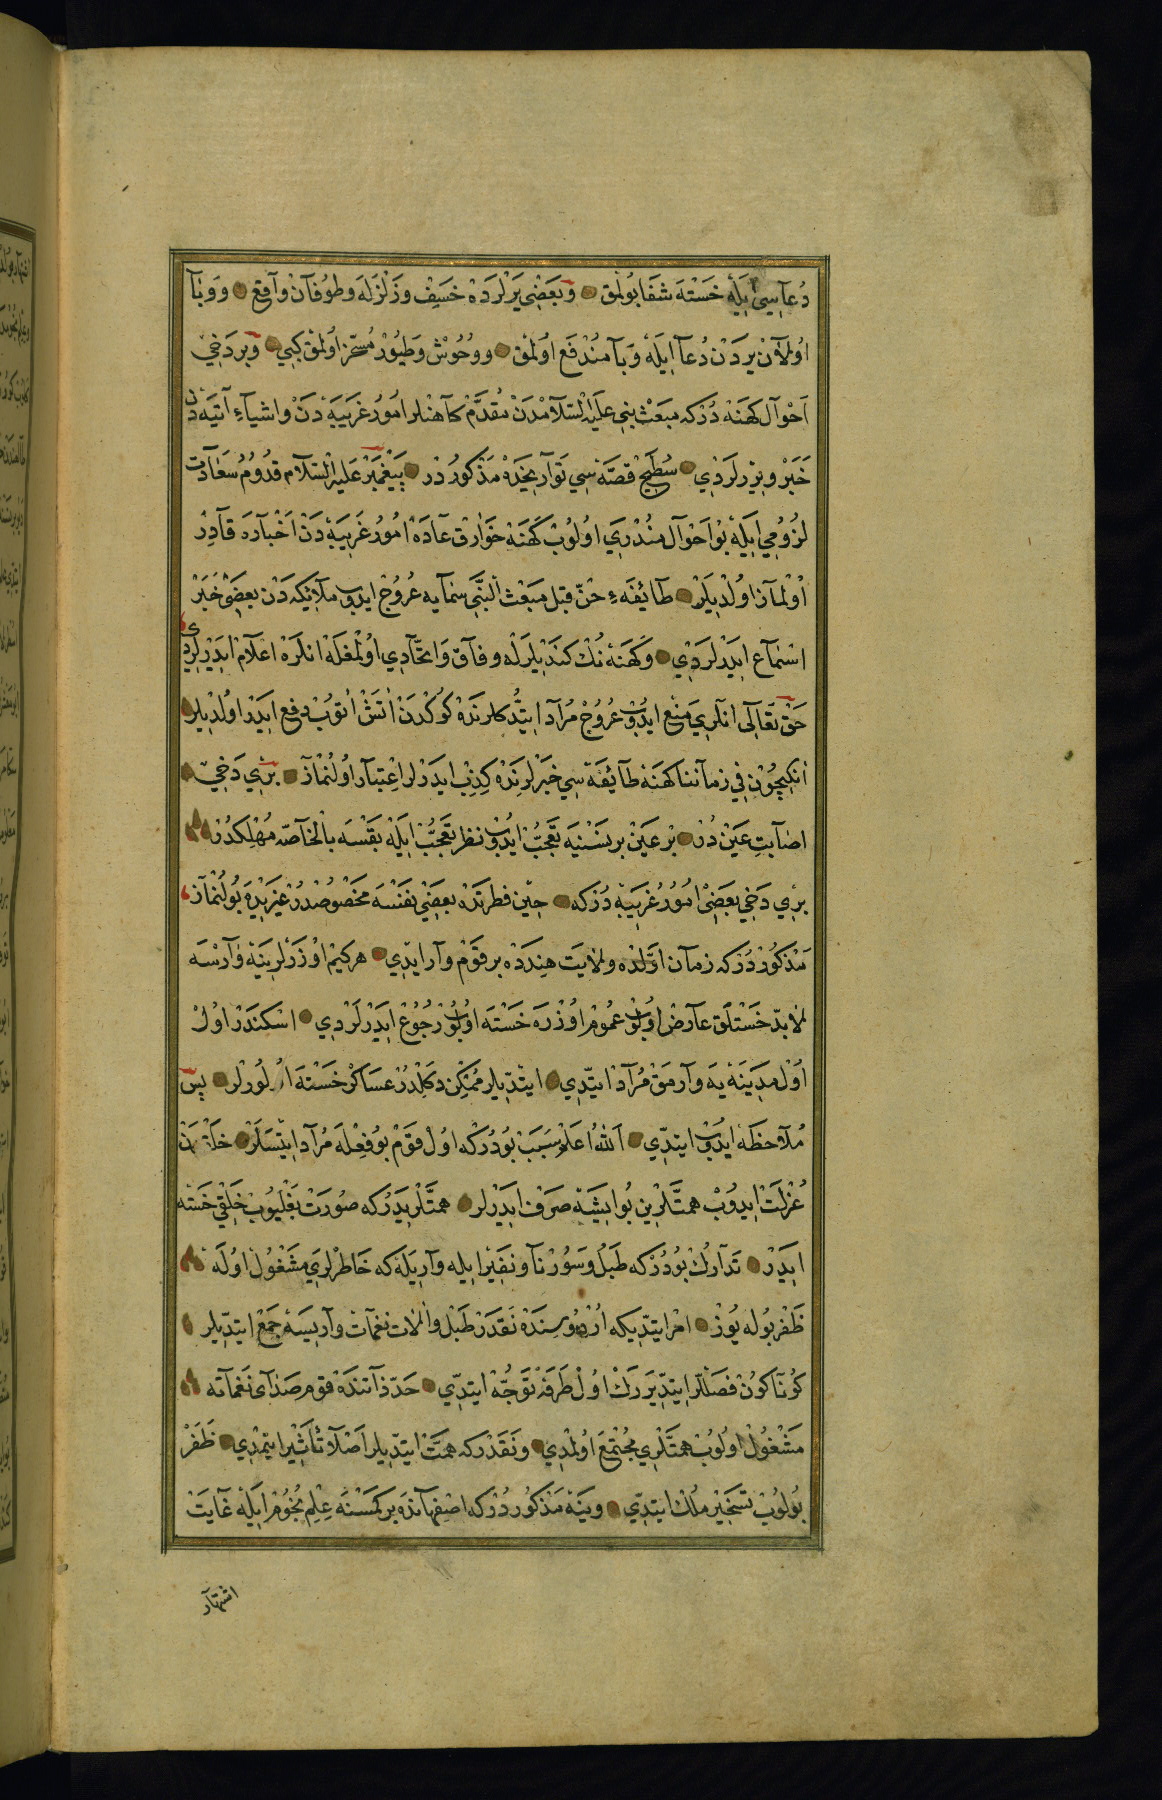 دُعاسِى ايلَه خَستَه شفَا بُولمق و بَعضِى يَرلرده خَسِف وزَلزَلَه وطوُفان واقع و وَبا
اوُلان يردن دُعا ايلَه وَبا مُندَفع اوُلمق ووُحُوش وَطيُور مُسخّر اوُلمق كِبى و بر دَخى
اَحوال كهَنَه دُر كه مبعَث نبى عليه السّلامدن مقدّم كاهنلر امُور غَريبَه دَن واشياءِ اتيَه دَن
خَبَر ويررلردِى سُطيح قصّه سِى تَواريخدَه مَذكور در پيغمبر عَليه السّلام قدُومُ سَعَادت
لزُومِى ايلَه بو اَحوال مُندرس اوُلوب كَهنَه خوَارق عادَه امُور غَريبَه دَن اَخبارَه قادِر
اوُلماز اوُلديلَر طائفَه ءِ جنّ قبل مبَعث النّبى سمايه عُروُج ايدوب ملائكه دَن بعضى خَبَر
استماع ايدَرلردِى وكَهنَه نُك كندَيلرلَه وفاق وَاتّحادِى اوُلمغله انلَره اعلام ايدَرلردِى
حَق تعَالى انلرى منع ايدُوب عُروُج مُراد ايتُدكلرندَه كوكدَن اتش اتوُب دفع ايدَر اوُلديلر
انكيچُون فى زماننا كهنَه طائفَه سى خبَرلرندَه كذِب ايدَرلر اعتبار اوُلنُماز برى دَخى
اصابت عَين دُر بر عَين بر نسنيَه تعجّب ايدُوب نظر تعجّب ايله بقسَه بالخاصّه مُهلكدُر
برى دَخى بعَضى امُورُ غريبَه دُر كه حين فطرتده بعضى نفسَه مخصُوصدر غيريده بُولنُماز
مَذكور دُر كه زمان اوّلده ولايت هندَده بر قوَم وار ايدى هر كيم اوُزرلرينَه وارسَه
لابد خَستَلق عارض اوُلوُب عمُوم اوُزره خَستَه اوُلوب رجُوع ايدَرلردى اسكندَر اوُل
اوُل مَدينَه يَه وارمق مُراد ايتدّى ايتديلر ممُكن دَكلدُر عساكر خَستَه اوُلورلر پس
مُلاحظَه ايدُوب ايتدّى اَللهُ اعلم سَبَب بودُر كه اوُل قوَم بو فِعلَه مُراد ايتسَلر خلقدن
عُزلَت ايدوُب همّتلرين بُو ايشَه صَرف ايدَرلر همّتلريدَر كه صُورت بغليُوب خَلقى خَسته
ايدَر تَدارك بودُر كه طَبل و سُورنا ونفير ايله واريله كه خَاطرلرى مَشغول اوُلَه
ظَفر بُوله يوز امر ايتدّى كه اردُوسِندَه نقَدر طبل والات نغمات واريسَه جمع ايتدّيلر
كونا كون فصللر ايتديرَرَك اوُل طرفه توَجّه ايتدّى حَدّ ذاتندَه قوم صَداى نغماته
مَشغُول اوُلوُب همّتلرى مجُتمع اوُلمدى و نقَدر كه همّت ايتدّيلر اصَلا تأثير ايتمدِى ظَفَر
بُولوُب تسَخير ملُك ايتدّى وينَه مَذكور دُر كه اصفهاندَه بر كمسَنه عِلم نجُوم ايلَه غايت
اشتهار